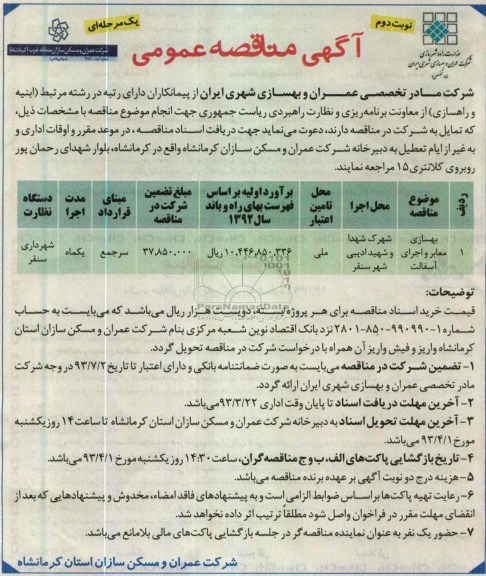 نوبت دوم
یک مرحله‌ای
وزارت راه و شهرسازی
شرکت عمران و بهسازی شهری ایران
شرکت عمران و مسکن سازان منطقه غرب (کرمانشاه)
آگهی مناقصه عمومی
شرکت مادر تخصصی عمران و بهسازی شهری ایران از پیمانکاران دارای رتبه در رشته مرتبط (ابنیه
و راهسازی) از معاونت برنامه‌ریزی و نظارت راهبردی ریاست جمهوری جهت انجام موضوع مناقصه با مشخصات ذیل،
که تمایل به شرکت در مناقصه دارند، دعوت می‌نماید جهت دریافت اسناد مناقصه، در موعد مقرر و اوقات اداری و
به غیر از ایام تعطیل به دبیرخانه شرکت عمران و مسکن سازان کرمانشاه واقع در کرمانشاه، بلوار شهدای رحمان پور
روبروی کلانتری ۱۵ مراجعه نمایند.
ردیف | موضوع مناقصه | محل اجرا | محل تامین اعتبار | برآورد اولیه بر اساس فهرست بهای راه و باند سال ۱۳۹۲ | مبلغ تضمین شرکت در مناقصه | مبنای قرارداد | مدت اجرا | دستگاه نظارت
۱ | بهسازی معابر و اجرای آسفالت | شهرک شهدا و شهید ادیبی شهر سنقر | ملی | ۱۰,۴۴۶,۸۵۰,۳۳۶ ریال | ۳۷,۸۵۰,۰۰۰ | سرجمع | یکماه | شهرداری سنقر
ParsNamadData
توضیحات:
قیمت خرید اسناد مناقصه برای هر پروژه/بسته، دویست هزار ریال می‌باشد که می‌بایست به حساب
شماره ۱-۹۹۰۹۹۰-۸۵۰-۲۸۰۱ نزد بانک اقتصاد نوین شعبه مرکزی بنام شرکت عمران و مسکن سازان استان
کرمانشاه واریز و فیش واریز آن همراه با درخواست شرکت در مناقصه تحویل گردد.
۱- تضمین شرکت در مناقصه می‌بایست به صورت ضمانتنامه بانکی و دارای اعتبار تا تاریخ ۹۳/۷/۲ در وجه شرکت
مادر تخصصی عمران و بهسازی شهری ایران ارائه گردد.
۲- آخرین مهلت دریافت اسناد تا پایان وقت اداری ۹۳/۳/۲۲ می‌باشد.
۳- آخرین مهلت تحویل اسناد به دبیرخانه شرکت عمران و مسکن سازان استان کرمانشاه تا ساعت ۱۴ روز یکشنبه
مورخ ۹۳/۴/۱ می‌باشد.
۴- تاریخ بازگشایی پاکت‌های الف، ب و ج مناقصه‌گران، ساعت ۱۴:۳۰ روز یکشنبه مورخ ۹۳/۴/۱ می‌باشد.
۵- هزینه درج دو نوبت آگهی بر عهده برنده مناقصه می‌باشد.
۶- رعایت تهیه پاکت‌ها بر اساس ضوابط الزامی است و به پیشنهادهای فاقد امضاء، مخدوش و پیشنهادهایی که بعد از
انقضای مهلت مقرر در فراخوان واصل شود مطلقاً ترتیب اثر داده نخواهد شد.
۷- حضور یک نفر به عنوان نماینده مناقصه‌گر در جلسه بازگشایی پاکت‌های مالی بلامانع می‌باشد.
شرکت عمران و مسکن سازان استان کرمانشاه